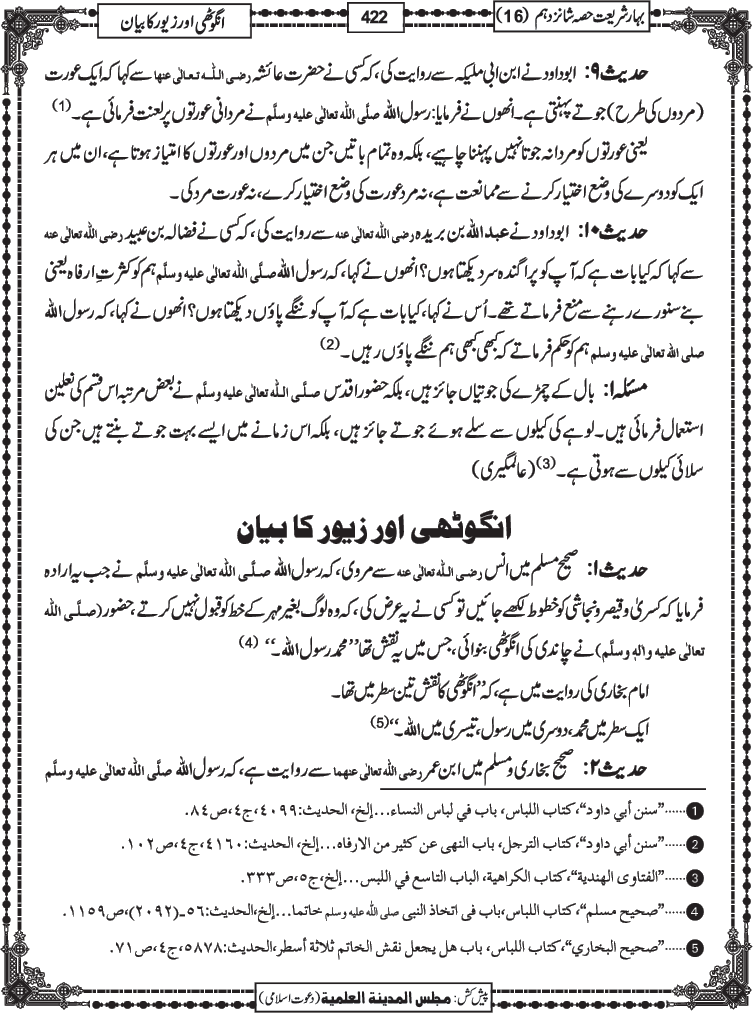 بہار شریعت حصہ شانزدہم (16)
422
انگوٹھی اور زیور کا بیان
حدیث ۹: ابوداود نے ابن ابی ملیکہ سے روایت کی، کہ کسی نے حضرت عائشہ رضی اللہ تعالٰی عنہا سے کہا کہ ایک عورت
(مردوں کی طرح) جوتے پہنتی ہے۔ انھوں نے فرمایا: رسول اللہ صلَّی اللہ تعالٰی علیہ وسلَّم نے مردانی عورتوں پر لعنت فرمائی ہے۔ (1)
یعنی عورتوں کو مردانہ جوتا نہیں پہننا چاہیے، بلکہ وہ تمام باتیں جن میں مردوں اور عورتوں کا امتیاز ہوتا ہے، ان میں ہر
ایک کو دوسرے کی وضع اختیار کرنے سے ممانعت ہے، نہ مرد عورت کی وضع اختیار کرے، نہ عورت مرد کی۔
حدیث ۱۰: ابوداود نے عبداللہ بن بریدہ رضی اللہ تعالٰی عنہ سے روایت کی، کہ کسی نے فضالہ بن عبید رضی اللہ تعالٰی عنہ
سے کہا کہ کیا بات ہے کہ آپ کو پراگندہ سر دیکھتا ہوں؟ انھوں نے کہا، کہ رسول اللہ صلَّی اللہ تعالٰی علیہ وسلَّم ہم کو کثرتِ ارفاہ یعنی
بنے سنورے رہنے سے منع فرماتے تھے۔ اُس نے کہا، کیا بات ہے کہ آپ کو ننگے پاؤں دیکھتا ہوں؟ انھوں نے کہا، کہ رسول اللہ
صلی اللہ تعالٰی علیہ وسلم ہم کو حکم فرماتے کہ کبھی کبھی ہم ننگے پاؤں رہیں۔ (2)
مسئلہ ۱: بال کے چمڑے کی جوتیاں جائز ہیں، بلکہ حضور اقدس صلَّی اللہ تعالٰی علیہ وسلَّم نے بعض مرتبہ اس قسم کی نعلین
استعمال فرمائی ہیں۔ لوہے کی کیلوں سے سلے ہوئے جوتے جائز ہیں، بلکہ اس زمانے میں ایسے بہت جوتے بنتے ہیں جن کی
سلائی کیلوں سے ہوتی ہے۔ (3) (عالمگیری)
انگوٹھی اور زیور کا بیان
حدیث ۱: صحیح مسلم میں انس رضی اللہ تعالٰی عنہ سے مروی، کہ رسول اللہ صلَّی اللہ تعالٰی علیہ وسلَّم نے جب یہ ارادہ
فرمایا کہ کسریٰ و قیصر و نجاشی کو خطوط لکھے جائیں تو کسی نے یہ عرض کی، کہ وہ لوگ بغیر مہر کے خط کو قبول نہیں کرتے، حضور (صلَّی اللہ
تعالٰی علیہ والہٖ وسلَّم) نے چاندی کی انگوٹھی بنوائی، جس میں یہ نقش تھا ’’محمد رسول اللہ۔‘‘ (4)
امام بخاری کی روایت میں ہے، کہ ’’انگوٹھی کا نقش تین سطر میں تھا۔
ایک سطر میں محمد، دوسری میں رسول، تیسری میں اللہ۔‘‘ (5)
حدیث ۲: صحیح بخاری و مسلم میں ابن عمر رضی اللہ تعالٰی عنہما سے روایت ہے، کہ رسول اللہ صلَّی اللہ تعالٰی علیہ وسلَّم
1 ......’’سنن أبي داود‘‘، کتاب اللباس، باب في لباس النساء...إلخ، الحدیث: ٤٠٩٩، ج٤، ص٨٤.
2 ......’’سنن أبي داود‘‘، کتاب الترجل، باب النھی عن کثیر من الارفاہ...إلخ، الحدیث: ٤١٦٠، ج٤، ص١٠٢.
3 ......’’الفتاوی الھندیة‘‘، کتاب الکراھیة، الباب التاسع في اللبس...إلخ، ج٥، ص٣٣٣.
4 ......’’صحیح مسلم‘‘، کتاب اللباس، باب فی اتخاذ النبی صلی اللہ علیہ وسلم خاتما...إلخ، الحدیث: ٥٦۔(٢٠٩٢)، ص١١٥٩.
5 ......’’صحیح البخاري‘‘، کتاب اللباس، باب ھل یجعل نقش الخاتم ثلاثة أسطر، الحدیث: ٥٨٧٨، ج٤، ص٧١.
پیش کش: مجلس المدینة العلمیة (دعوت اسلامی)